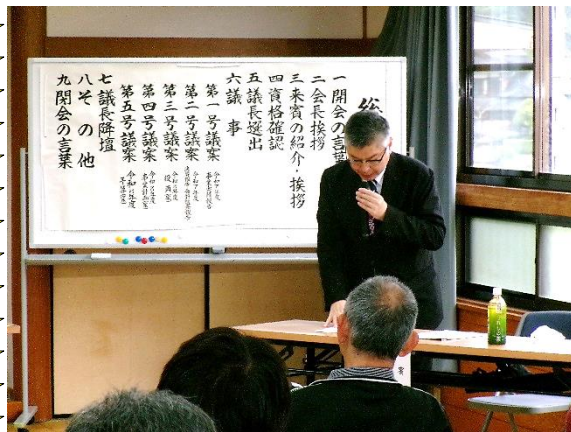 総
一 開会の言葉
二 会長挨拶
三 来賓の紹介・挨拶
四 資格確認
五 議長選出
六 議事
第一号議案
第二号議案
第三号議案
第四号議案
第五号議案
七 議長降壇
八 その他
九 閉会の言葉